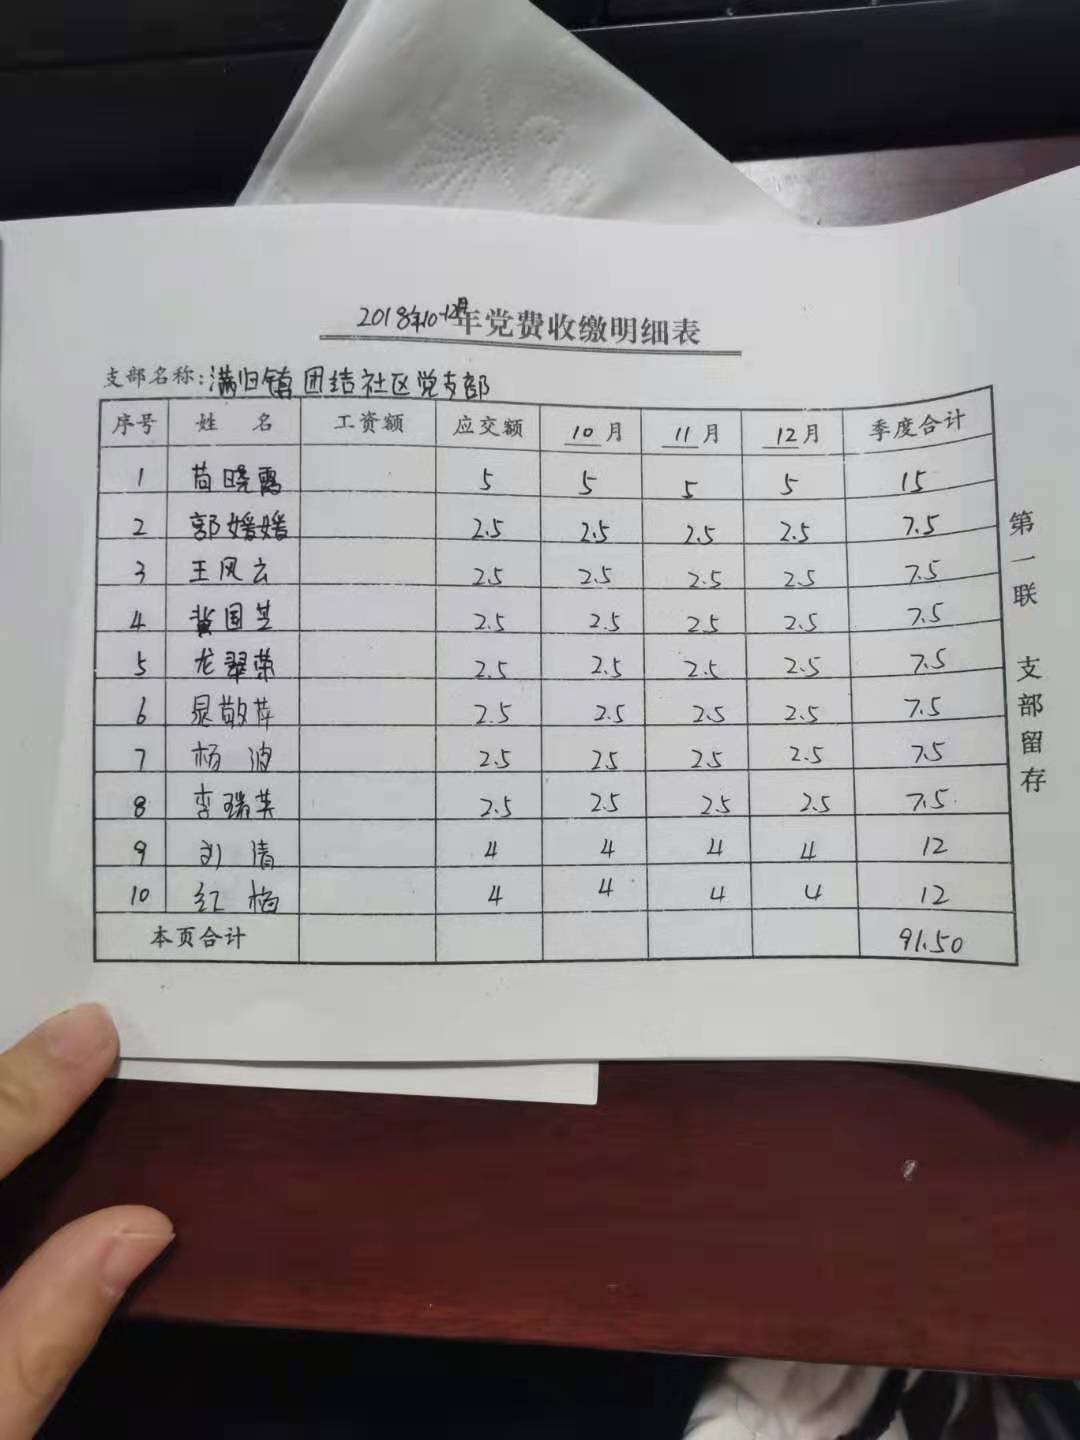 2018年10-12月年党费收缴明细表
支部名称:满归镇团结社区党支部
序号 姓 名 工资额 应交额 10月 11月 12月 季度合计
1 苗晓霞 5 5 5 5 15
2 郭媛媛 2.5 2.5 2.5 2.5 7.5
3 王凤云 2.5 2.5 2.5 2.5 7.5
4 冀国芝 2.5 2.5 2.5 2.5 7.5
5 龙翠荣 2.5 2.5 2.5 2.5 7.5
6 晁敬萍 2.5 2.5 2.5 2.5 7.5
7 杨波 2.5 2.5 2.5 2.5 7.5
8 李瑞英 2.5 2.5 2.5 2.5 7.5
9 刘清 4 4 4 4 12
10 红梅 4 4 4 4 12
本页合计 91.50
第一联 支部留存